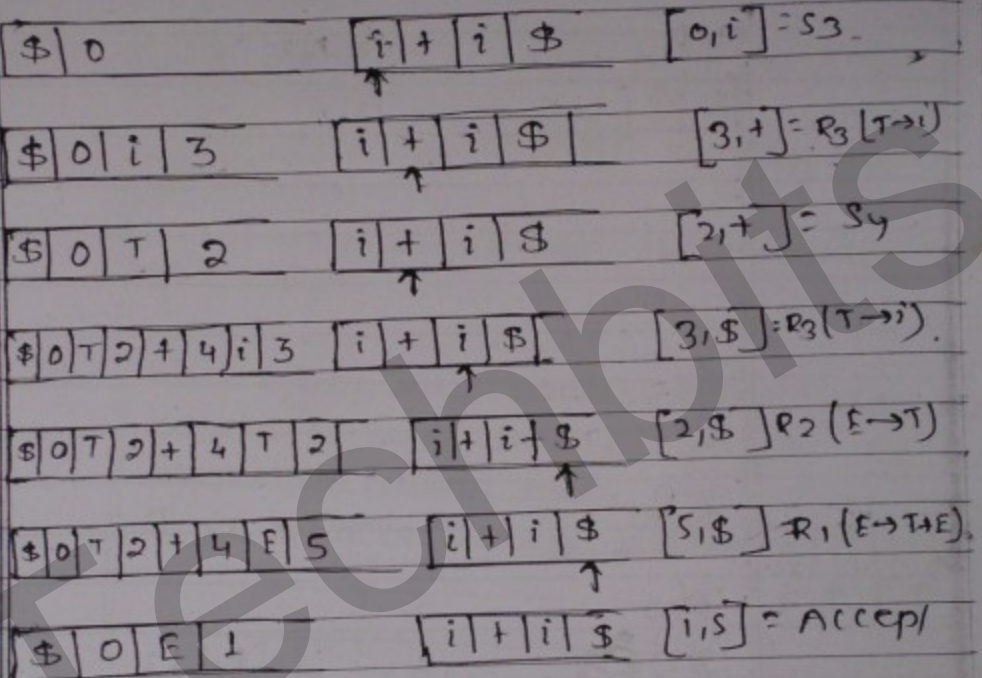 $ 0 i + i $ [0,i] = S3
$ 0 i 3 i + i $ [3,+] = R3 (T→i)
$ 0 T 2 i + i $ [2,+] = S4
$ 0 T 2 + 4 i 3 i + i $ [3,$] = R3 (T→i).
$ 0 T 2 + 4 T 2 i + i + $ [2,$] R2 (E→T)
$ 0 T 2 + 4 E 5 i + i $ [5,$] = R1 (E→T+E).
$ 0 E 1 i + i $ [1,S] = Accept
Techbits